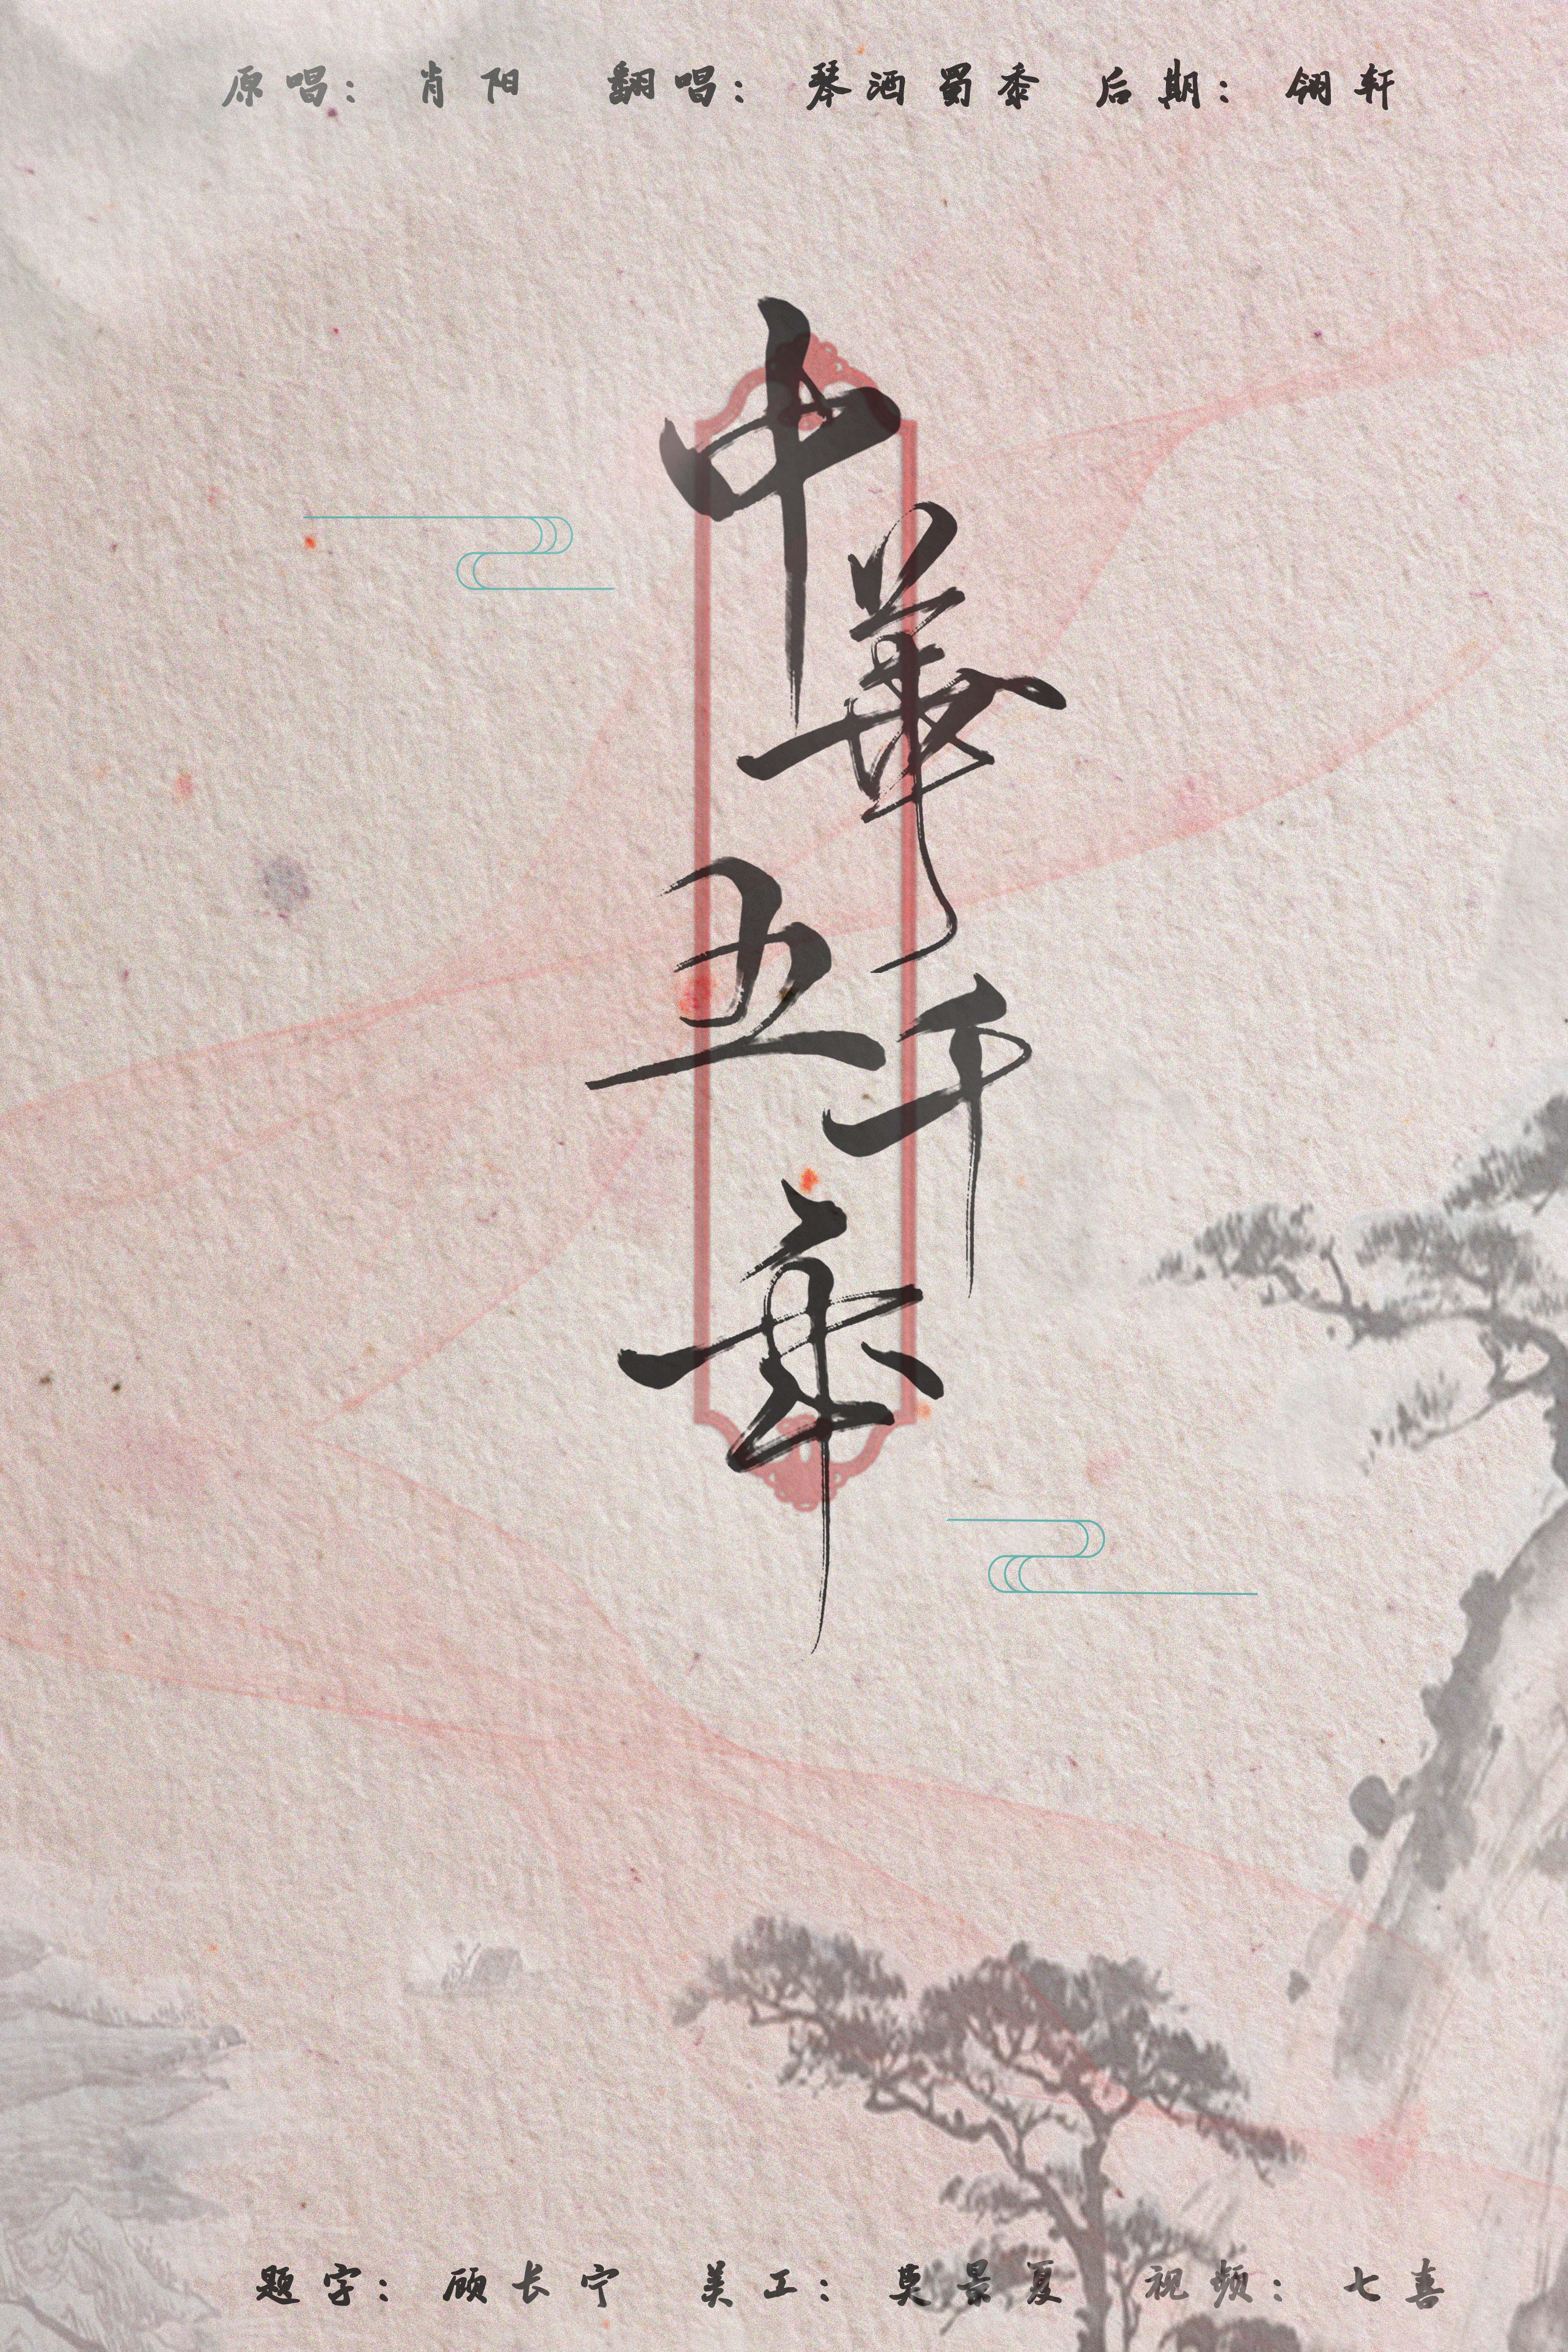 原唱：肖阳 翻唱：琴酒蜀黍 后期：翎轩
中華五千年
题字：顾长宁 美工：莫景夏 视频：七喜